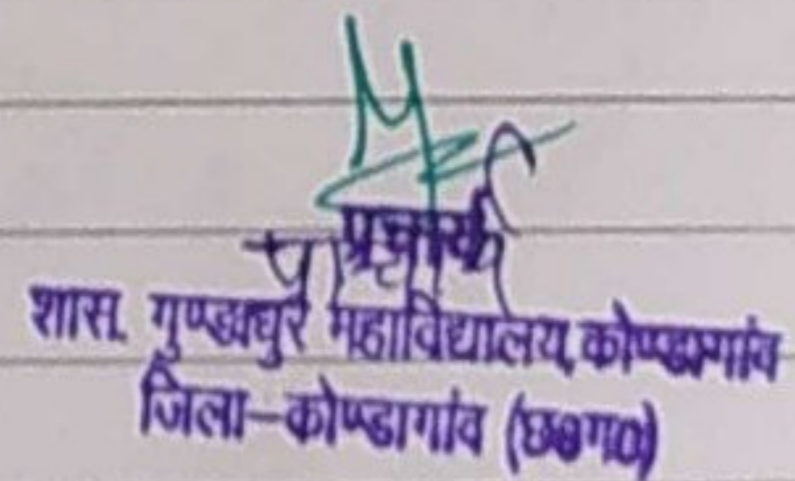 प्राचार्य
शास. गुण्डाधुर महाविद्यालय, कोण्डागांव
जिला-कोण्डागांव (छ०ग०)